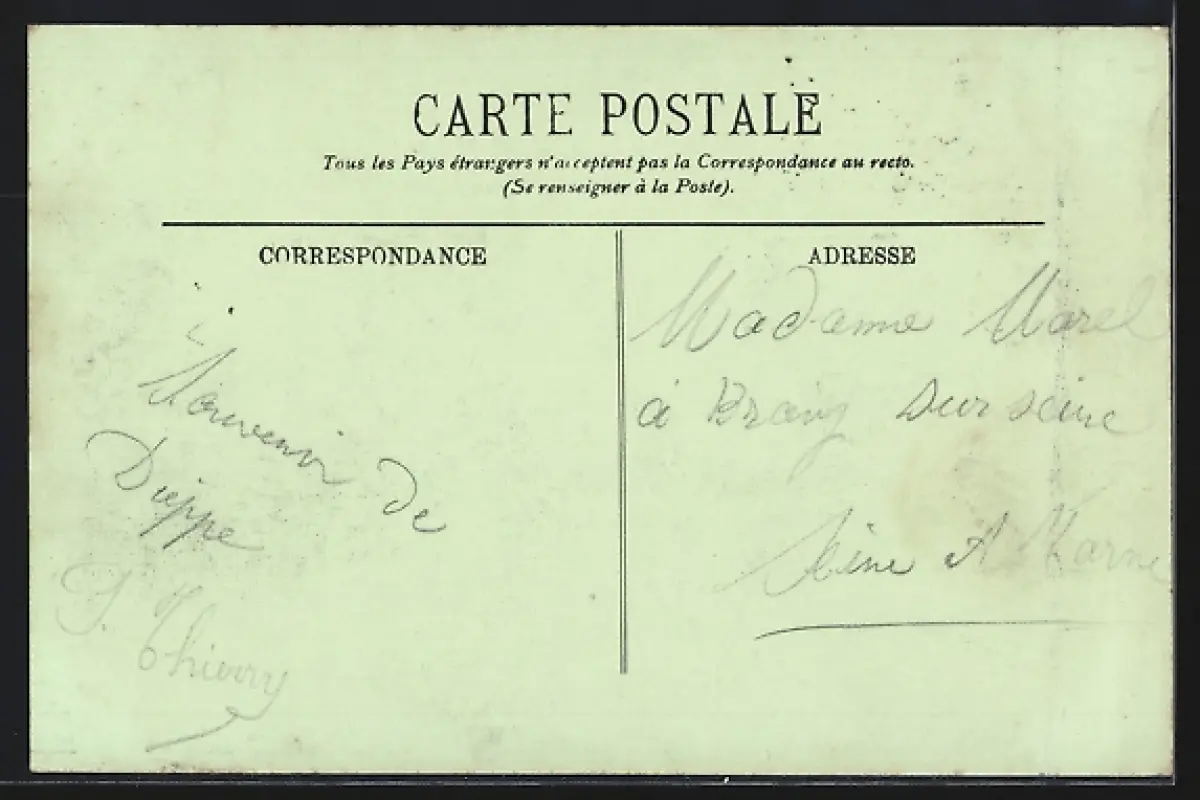 CARTE POSTALE
Tous les Pays étrangers n'acceptent pas la Correspondance au recto.
(Se renseigner à la Poste).
CORRESPONDANCE
Souvenir de
Dieppe
S. Thierry
ADRESSE
Madame Morel
à Bray Sur Seine
Seine & Marne